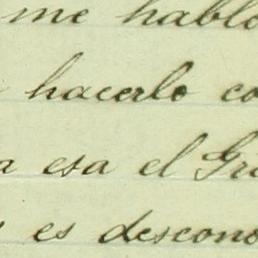 me hablo
hacerlo co
a esa el Gra
s es descono